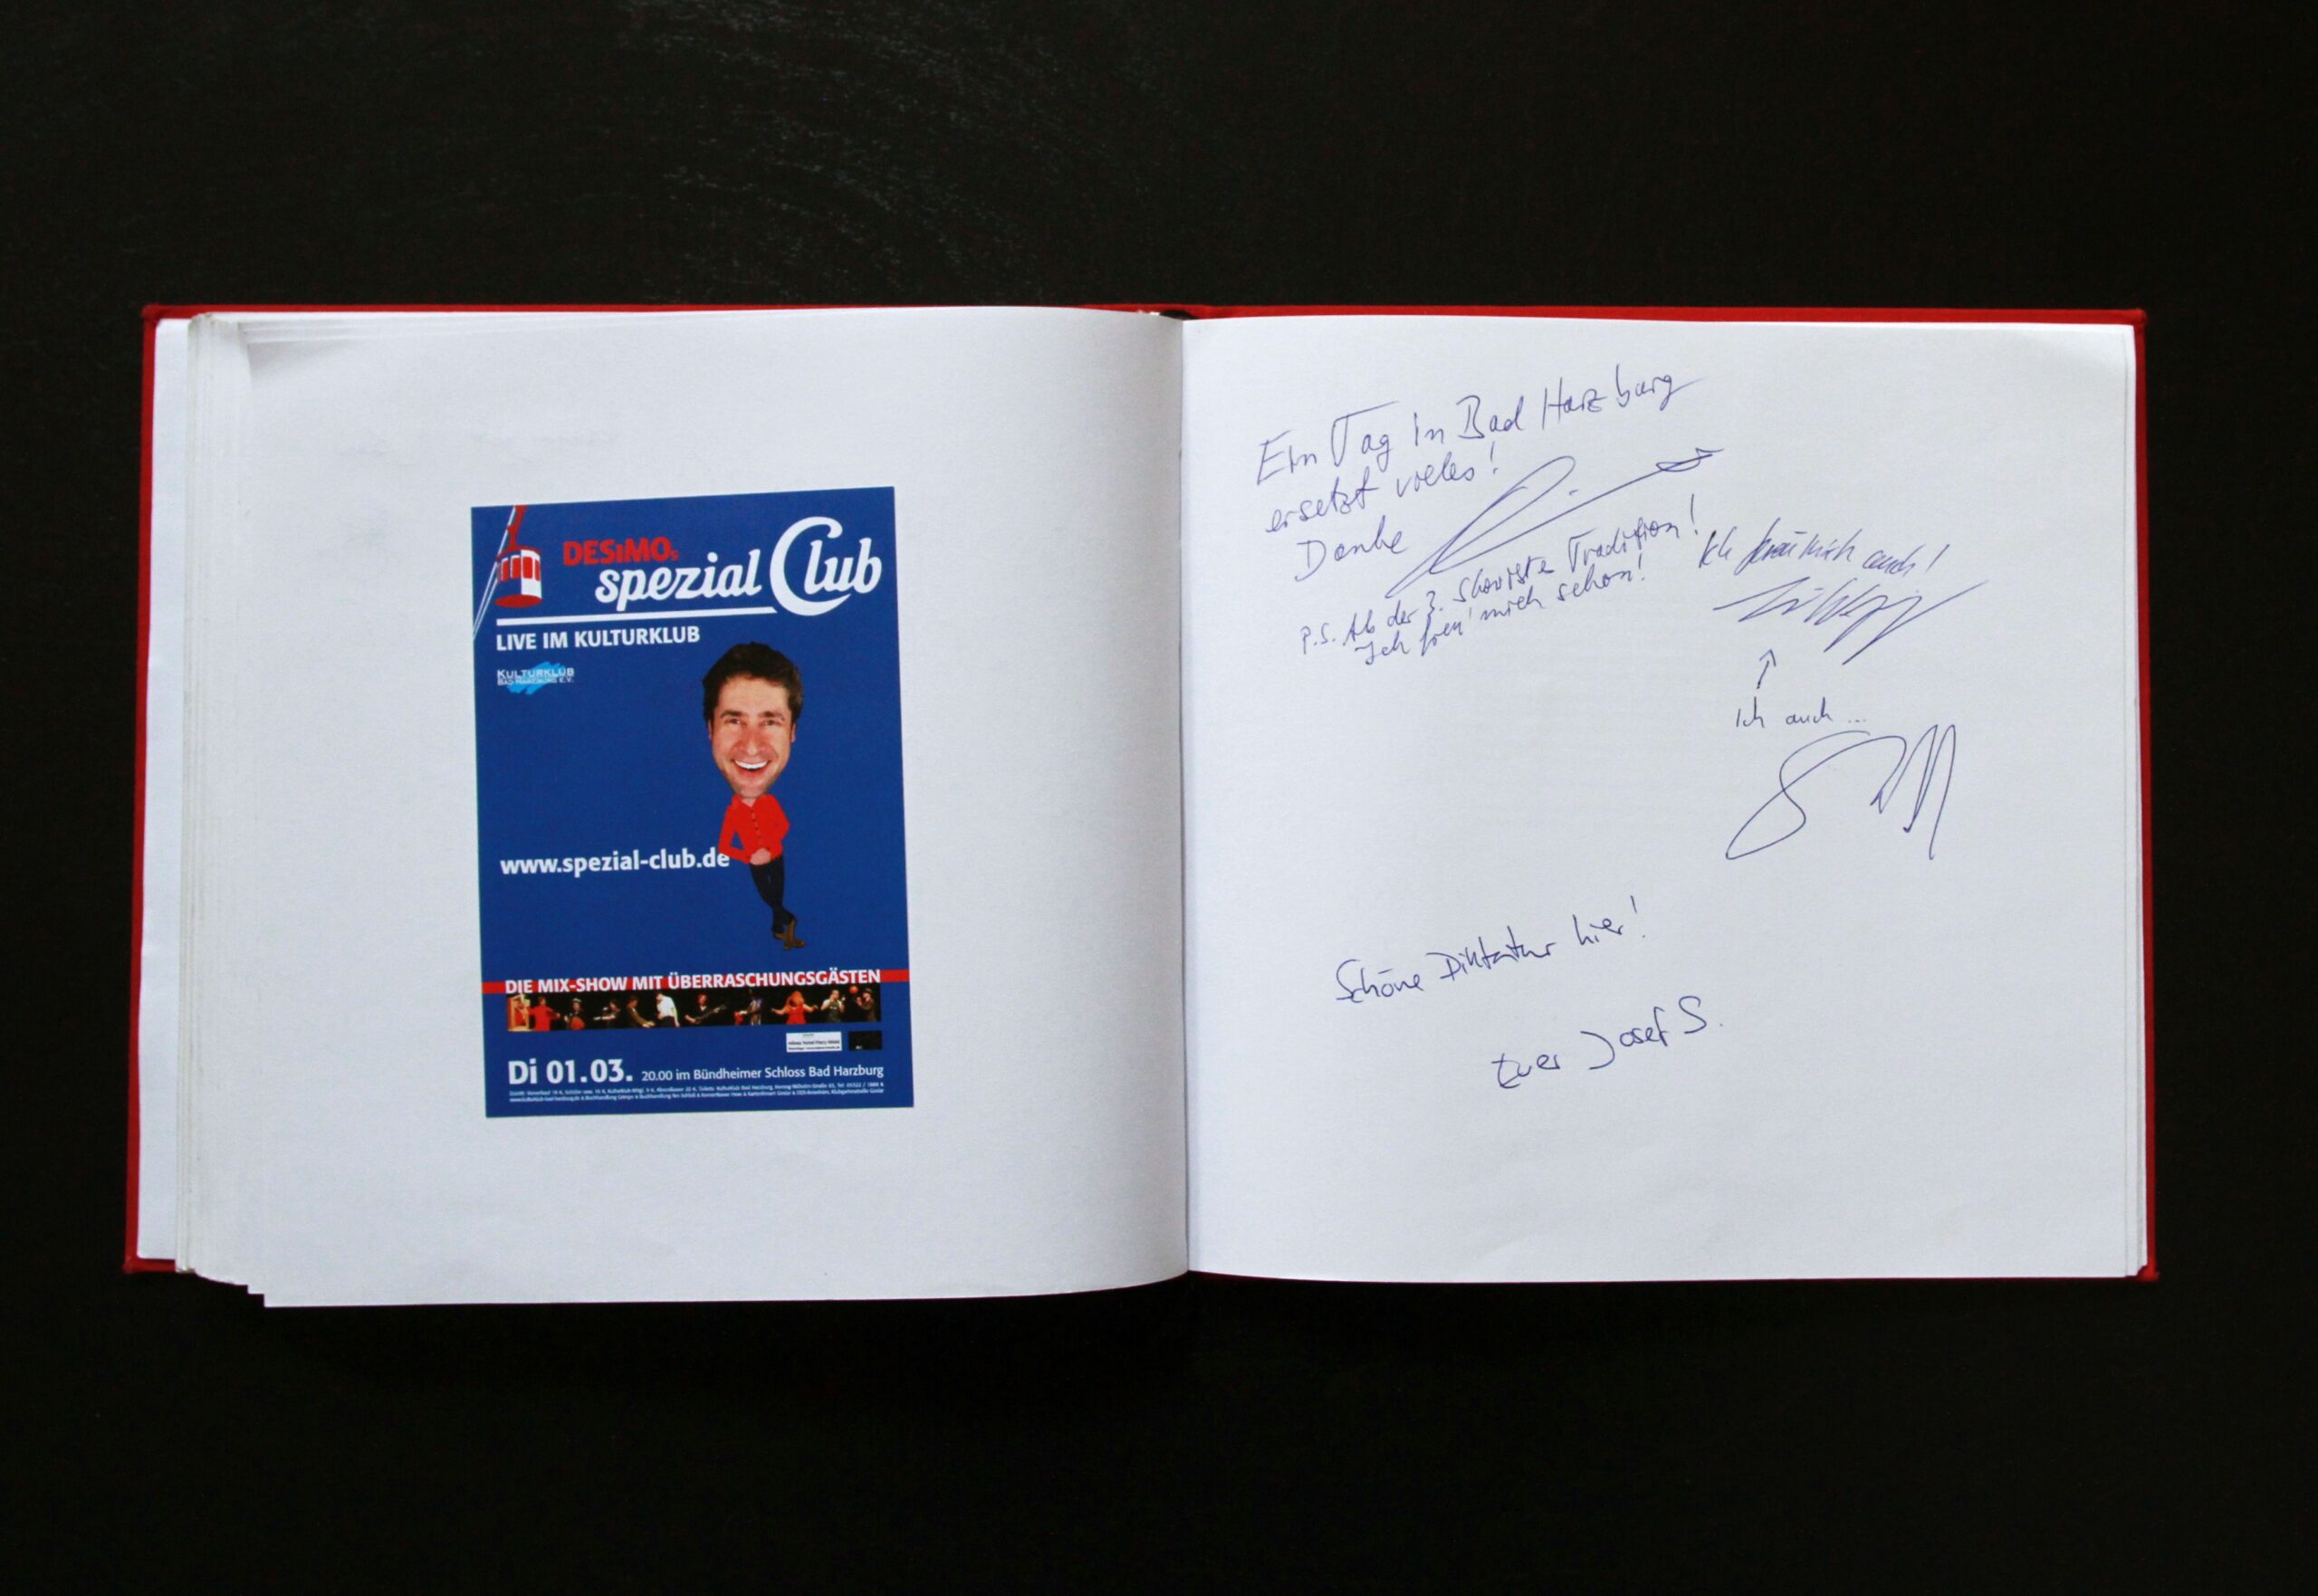 DESiMOs
spezial Club
LIVE IM KULTURKLUB
KULTURKLUB
BAD HARZBURG E.V.
www.spezial-club.de
DIE MIX-SHOW MIT ÜBERRASCHUNGSGÄSTEN
Di 01.03. 20.00 im Bündheimer Schloss Bad Harzburg
Ein Tag in Bad Harzburg
ersetzt vieles!
Danke
P.S. Ab der 3. Show ist's Tradition!
Ich freu' mich schon!
Ich freu mich auch!
Ich auch ...
Schöne Diktatur hier!
Euer Josef S.